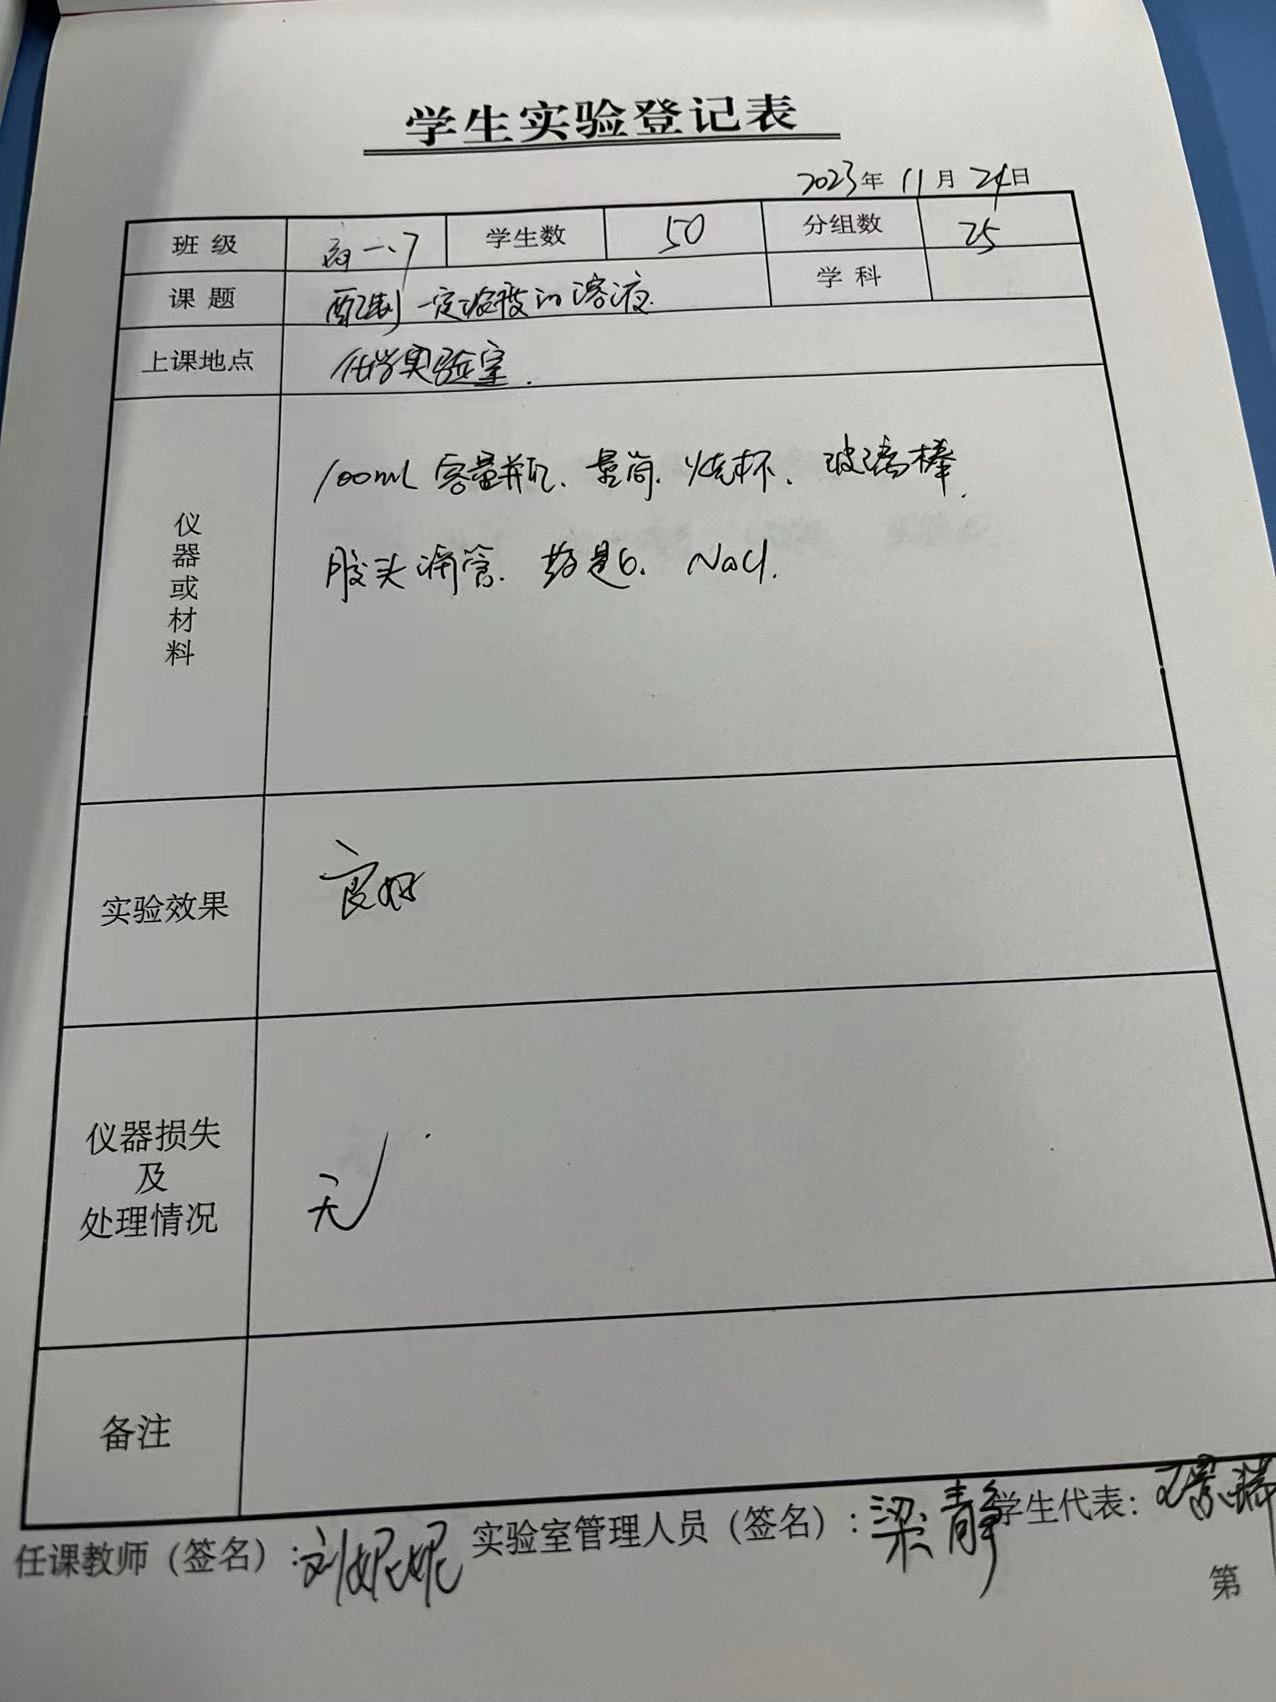 学生实验登记表
2023年 11月 24日
班级 高一、7 学生数 50 分组数 25
课题 配制一定浓度的溶液. 学科
上课地点 化学实验室.
仪器或材料 100mL 容量瓶、量筒、烧杯、玻璃棒、
胶头滴管、药匙、NaCl.
实验效果 良好
仪器损失
及
处理情况 无
备注
任课教师（签名）:刘妮妮 实验室管理人员（签名）:梁静 学生代表:
第